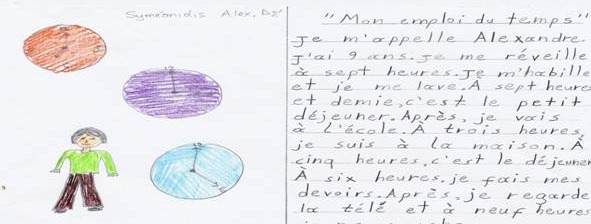 Symeonidis Alex, Δ2'
"Mon emploi du temps"
Je m'appelle Alexandre.
J'ai 9 ans. Je me réveille
à sept heures. Je m'habille
et je me lave. À sept heures
et demie, c'est le petit
déjeuner. Après, je vais
à l'école. À trois heures,
je suis à la maison. À
cinq heures, c'est le déjeuner
À six heures, je fais mes
devoirs. Après, je regarde
la télé et à neuf heures
12
12